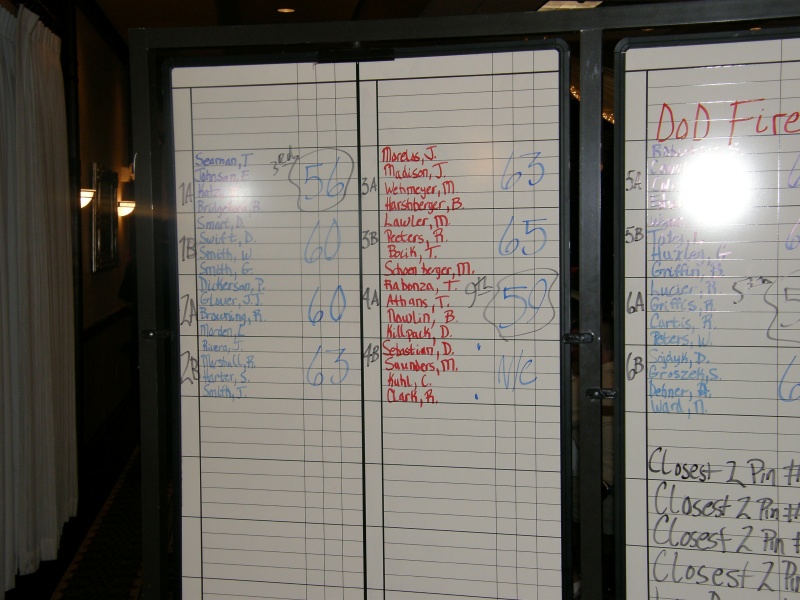 1A
Seaman, T.
Johnson, F.
Katz
Bridge
B.
3rd
56
1B
Smart, D.
Swift, D.
Smith, W.
Smith, G.
60
2A
Dickerson, P.
Glover, J.J.
Browning, R.
60
2B
Rivera, J.
Marshall, R.
Harter, S.
Smith, J.
63
3A
Morelos, J.
Madison, J.
Wehmeyer, M
Harshberger, B.
63
3B
Lawler, M.
Peeters, R.
Bocik, T.
Schoenberger, M.
65
4A
Rabonza, T.
Athans, T.
Nowlin, B.
Killpack, D.
9th
59
4B
Sebastian, D.
Saunders, M.
Kuhl, C.
Clark, R.
N/C
DoD Fire
5A
5B
Griffin,
6A
Lucier, R.
Griffis, R.
Curtis, R.
Peters, W.
5
6B
Sojdyk, D.
Groszek, S.
Dehner, A.
Ward, N.
6
Closest 2 Pin #
Closest 2 Pin #
Closest 2 Pin #
Closest 2 Pin